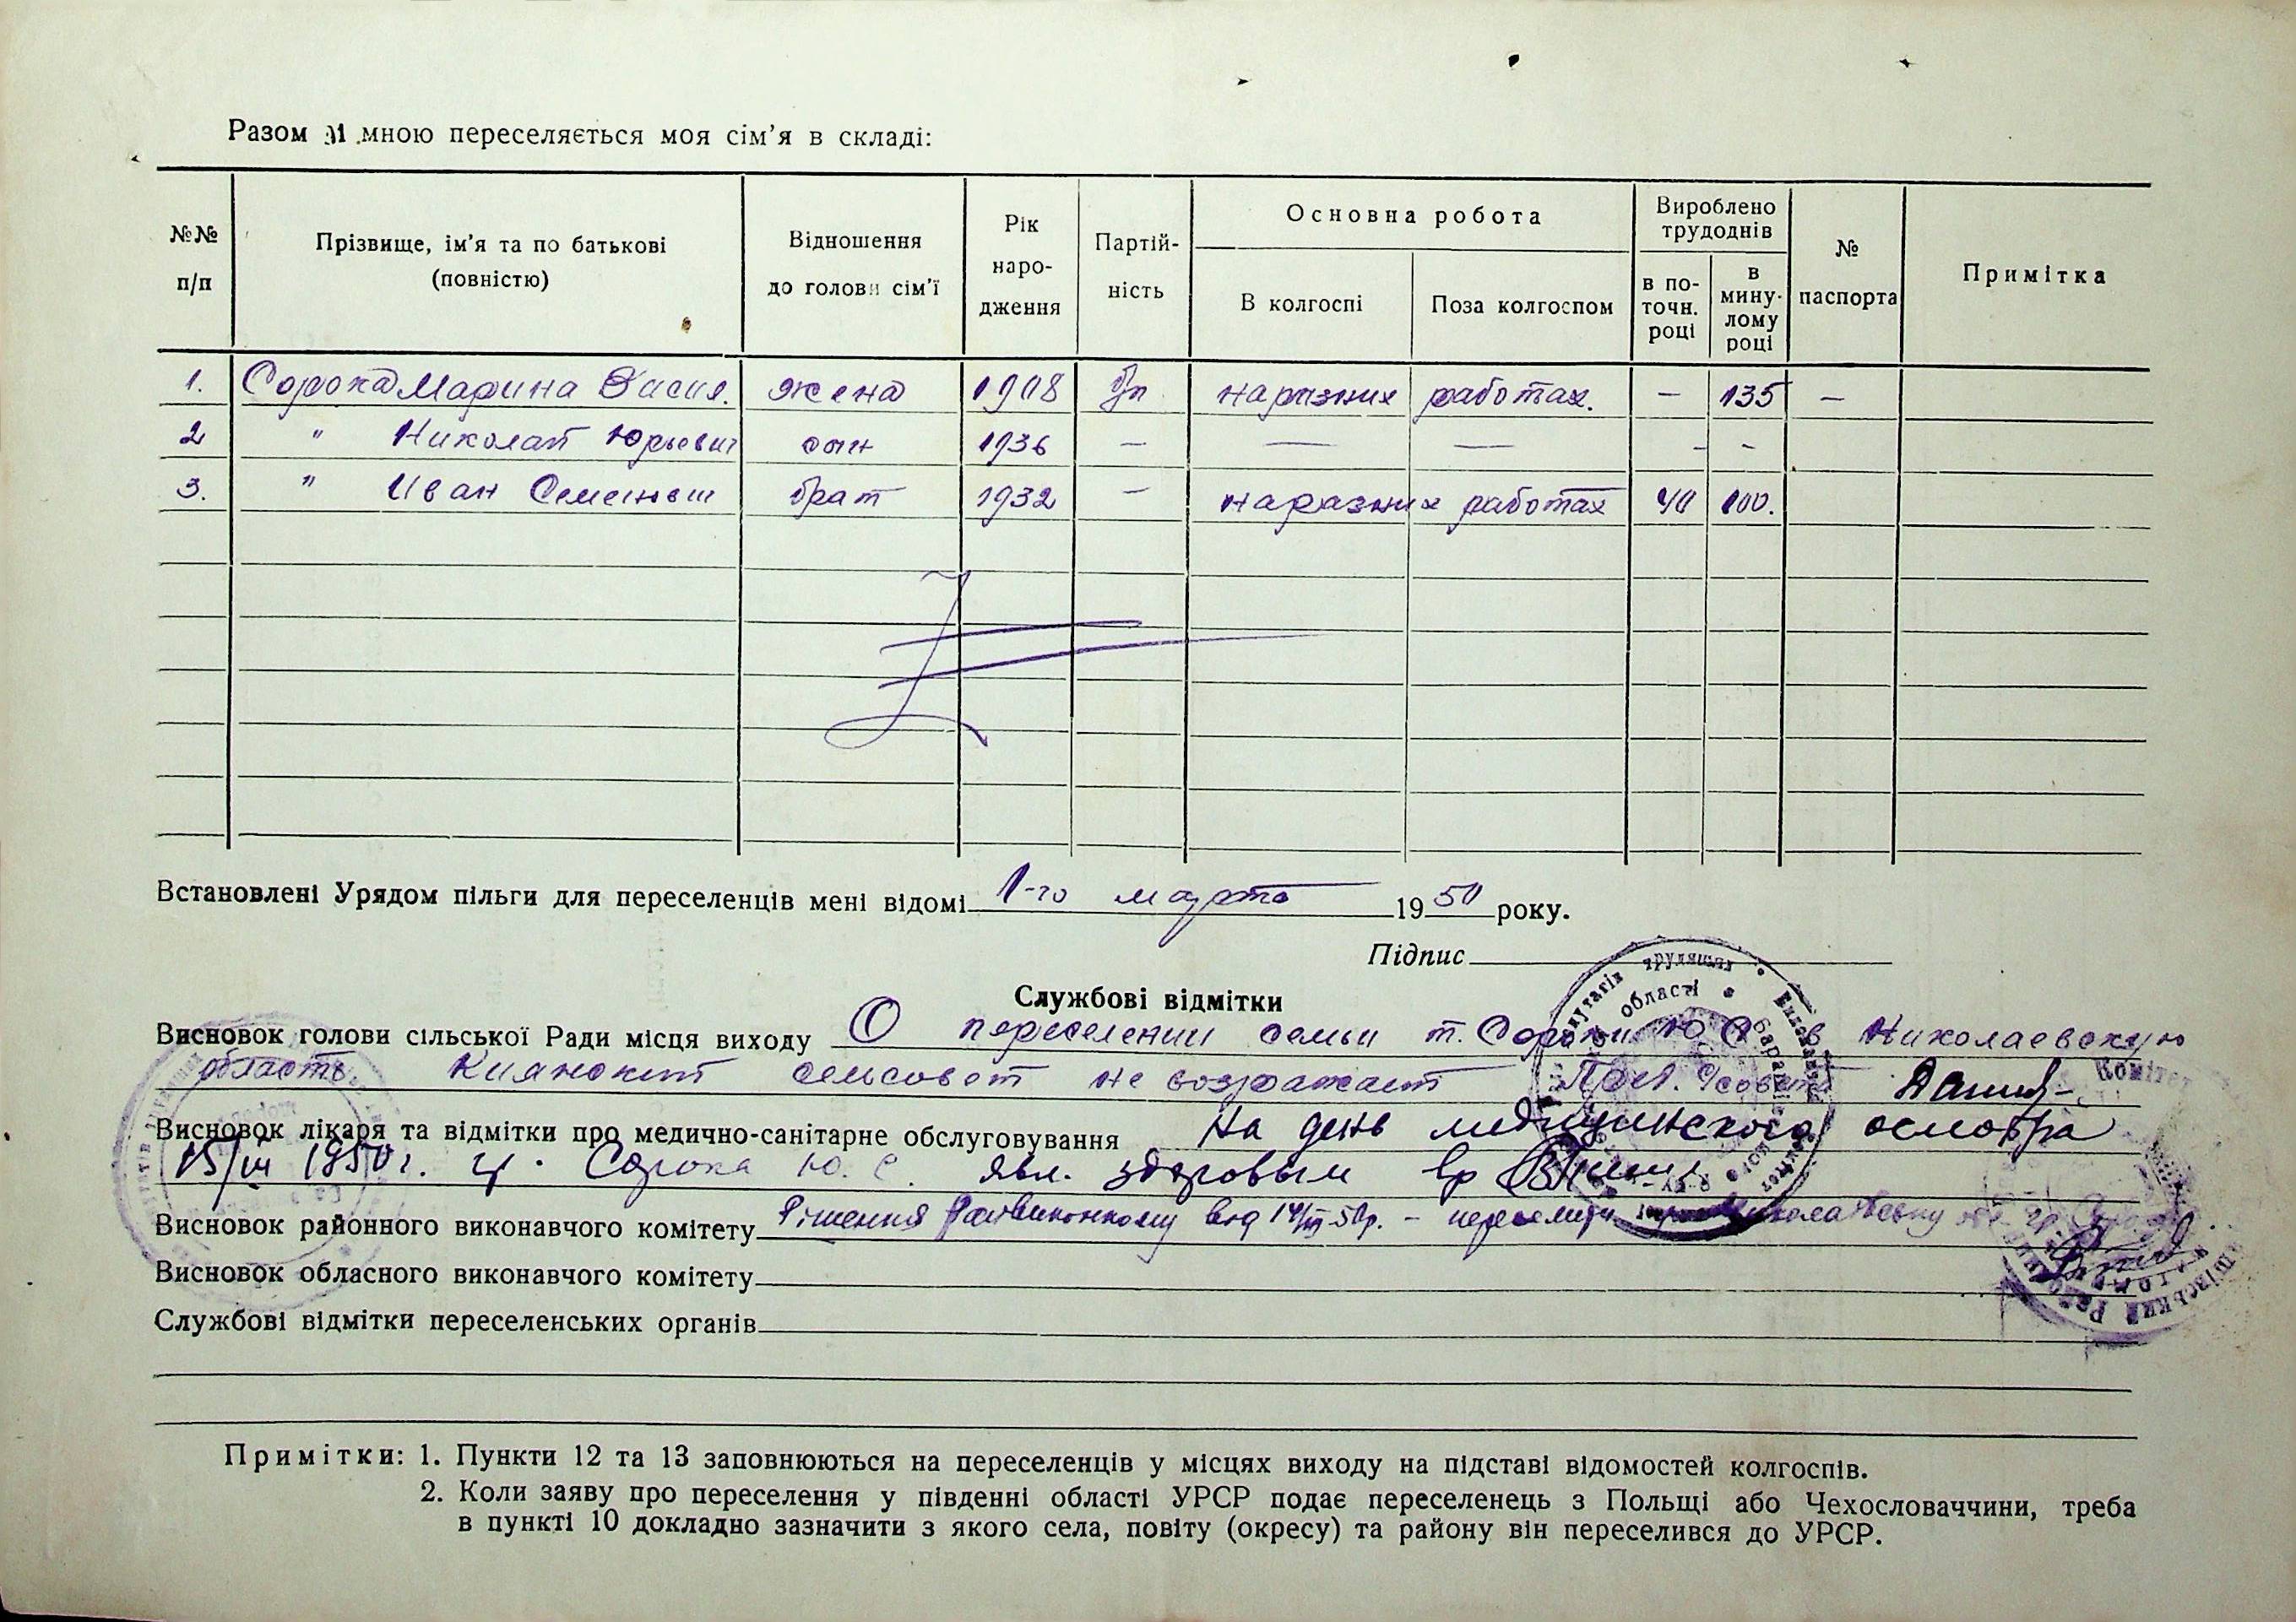 Разом зі мною переселяється моя сім'я в складі:
№№ п/п | Прізвище, ім'я та по батькові (повністю) | Відношення до голови сім'ї | Рік народження | Партійність | Основна робота: В колгоспі | Поза колгоспом | Вироблено трудоднів: в поточн. році | в минулому році | № паспорта | Примітка
1. Сорока Марина Васил. жена 1908 б/п на разних работах. — 135 —
2 " Николай Юрьевич сын 1936 — — — - -
3. " Иван Семенович брат 1932 — на разних работах 40 100.
Встановлені Урядом пільги для переселенців мені відомі 1-го марта 1950 року.
Підпис
Службові відмітки
Висновок голови сільської Ради місця виходу О переселении семьи т. Сороки Ю. С. в Николаевскую
область. Киянский сельсовет не возражает
Висновок лікаря та відмітки про медично-санітарне обслуговування На день медицинского осмотра
15/III 1950 г. гр. Сорока Ю. С. явл. здоровым Вр
Висновок районного виконавчого комітету Рішення Райвиконкому від 14/III-50р. – переселити
Висновок обласного виконавчого комітету
Службові відмітки переселенських органів
Примітки: 1. Пункти 12 та 13 заповнюються на переселенців у місцях виходу на підставі відомостей колгоспів.
2. Коли заяву про переселення у південні області УРСР подає переселенець з Польщі або Чехословаччини, треба
в пункті 10 докладно зазначити з якого села, повіту (окресу) та району він переселився до УРСР.